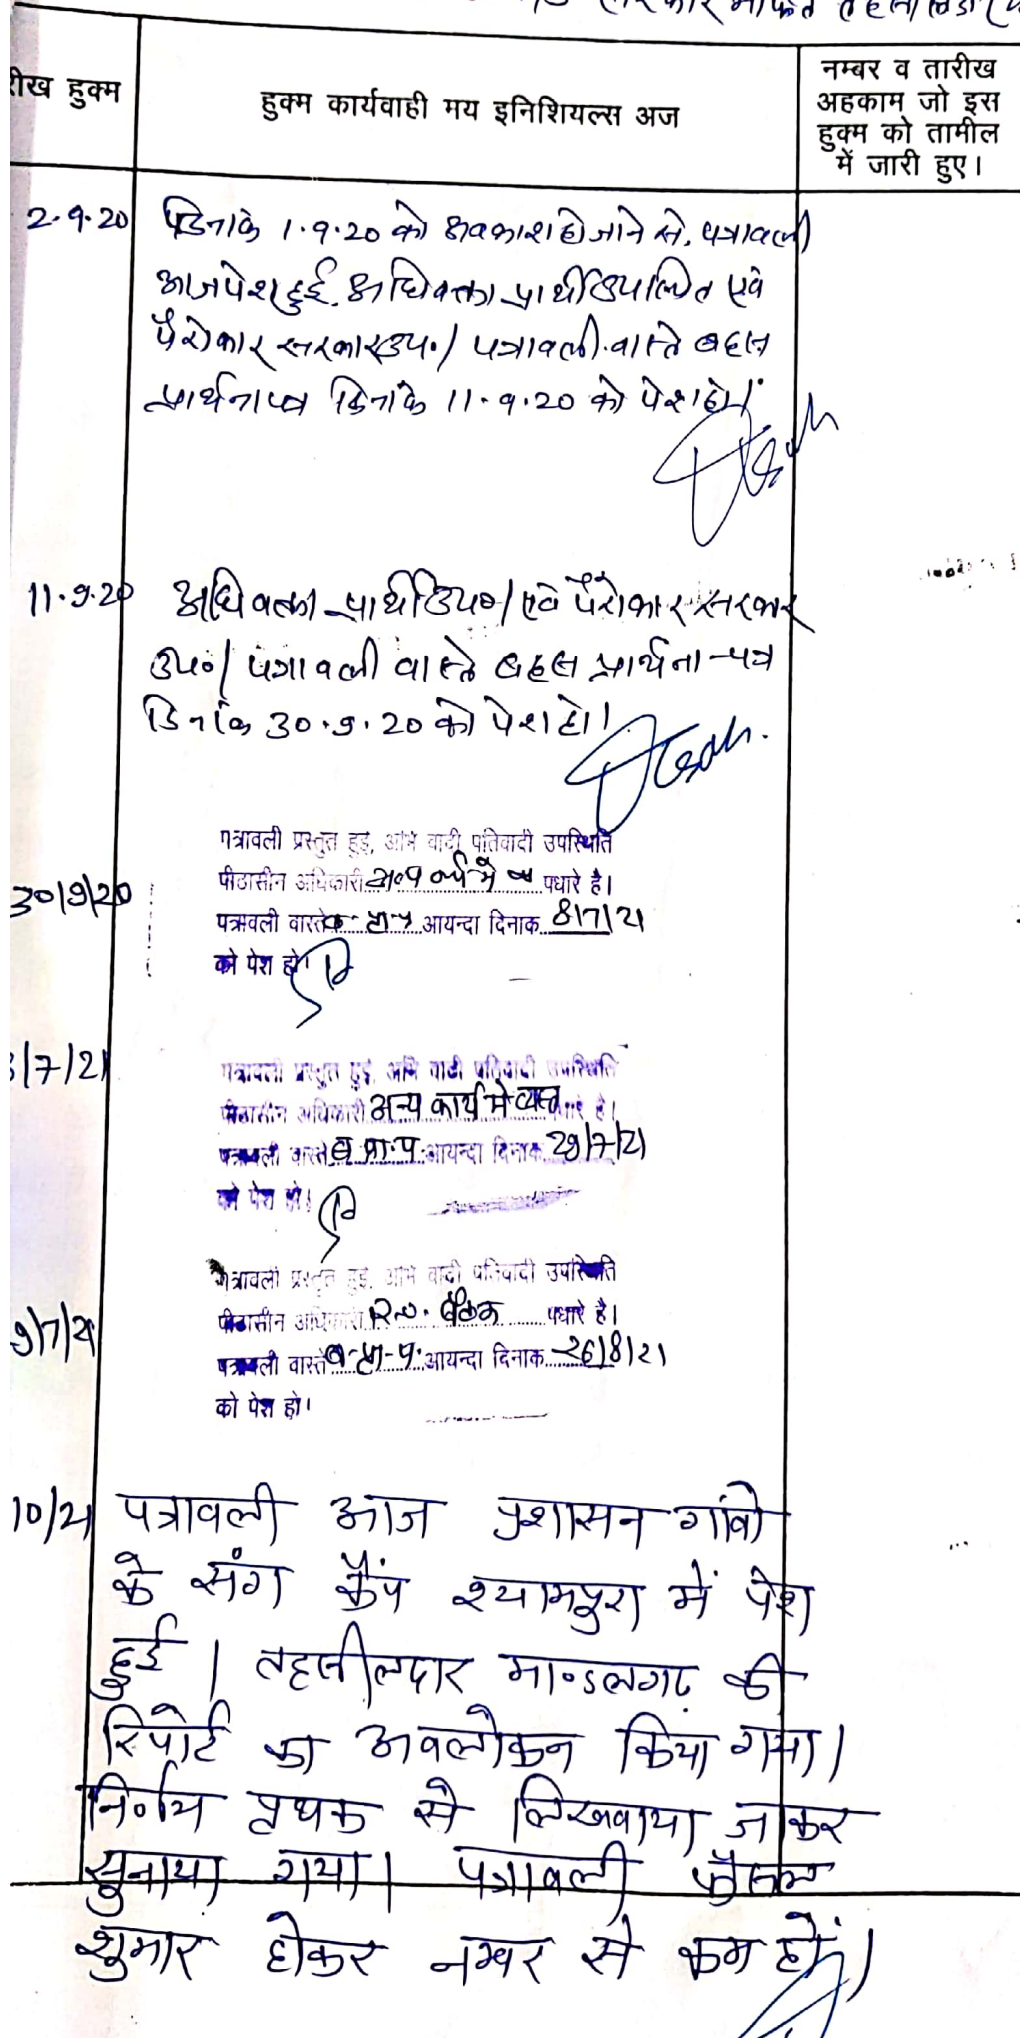 सरकार
रीख हुक्म
हुक्म कार्यवाही मय इनिशियल्स अज
नम्बर व तारीख
अहकाम जो इस
हुक्म को तामील
में जारी हुए।
2.9.20
दिनांक 1.9.20 को अवकाश हो जाने से, पत्रावली
आज पेश हुई. अधिवक्ता प्रार्थी उपस्थित एवं
पैरोकार सरकार उप०/ पत्रावली वास्ते बहस
प्रार्थना पत्र दिनांक 11.9.20 को पेश हो।
11.9.20
अधिवक्ता प्रार्थी उप०/ एवं पैरोकार सरकार
उप०/ पत्रावली वास्ते बहस प्रार्थना-पत्र
दिनांक 30.9.20 को पेश हो।
30/9/20
पत्रावली प्रस्तुत हुई, अभि वादी प्रतिवादी उपस्थिति
पीठासीन अधिकारी अन्य कार्य में पधारे है।
पत्रावली वास्ते आयन्दा दिनाक 8/7/21
को पेश हो।
/7/21
पत्रावली प्रस्तुत हुई, अभि वादी प्रतिवादी उपस्थिति
पीठासीन अधिकारी अन्य कार्य मे व्यस्त है।
पत्रावली वास्ते ब प्रा.प. आयन्दा दिनाक 29/7/21
को पेश हो।
9/7/21
पत्रावली प्रस्तुत हुई, अभि वादी प्रतिवादी उपस्थिति
पीठासीन अधिकारी बैठक पधारे है।
पत्रावली वास्ते ब-प्रा-प. आयन्दा दिनाक 26/8/21
को पेश हो।
10/21
पत्रावली आज प्रशासन गांवो
के संग कैंप श्यामपुरा में पेश
हुई। तहसीलदार माण्डलगढ की
रिपोर्ट का अवलोकन किया गया।
निर्णय पृथक से लिखवाया जाकर
सुनाया गया। पत्रावली फैसल
शुमार होकर नम्बर से कम हो।